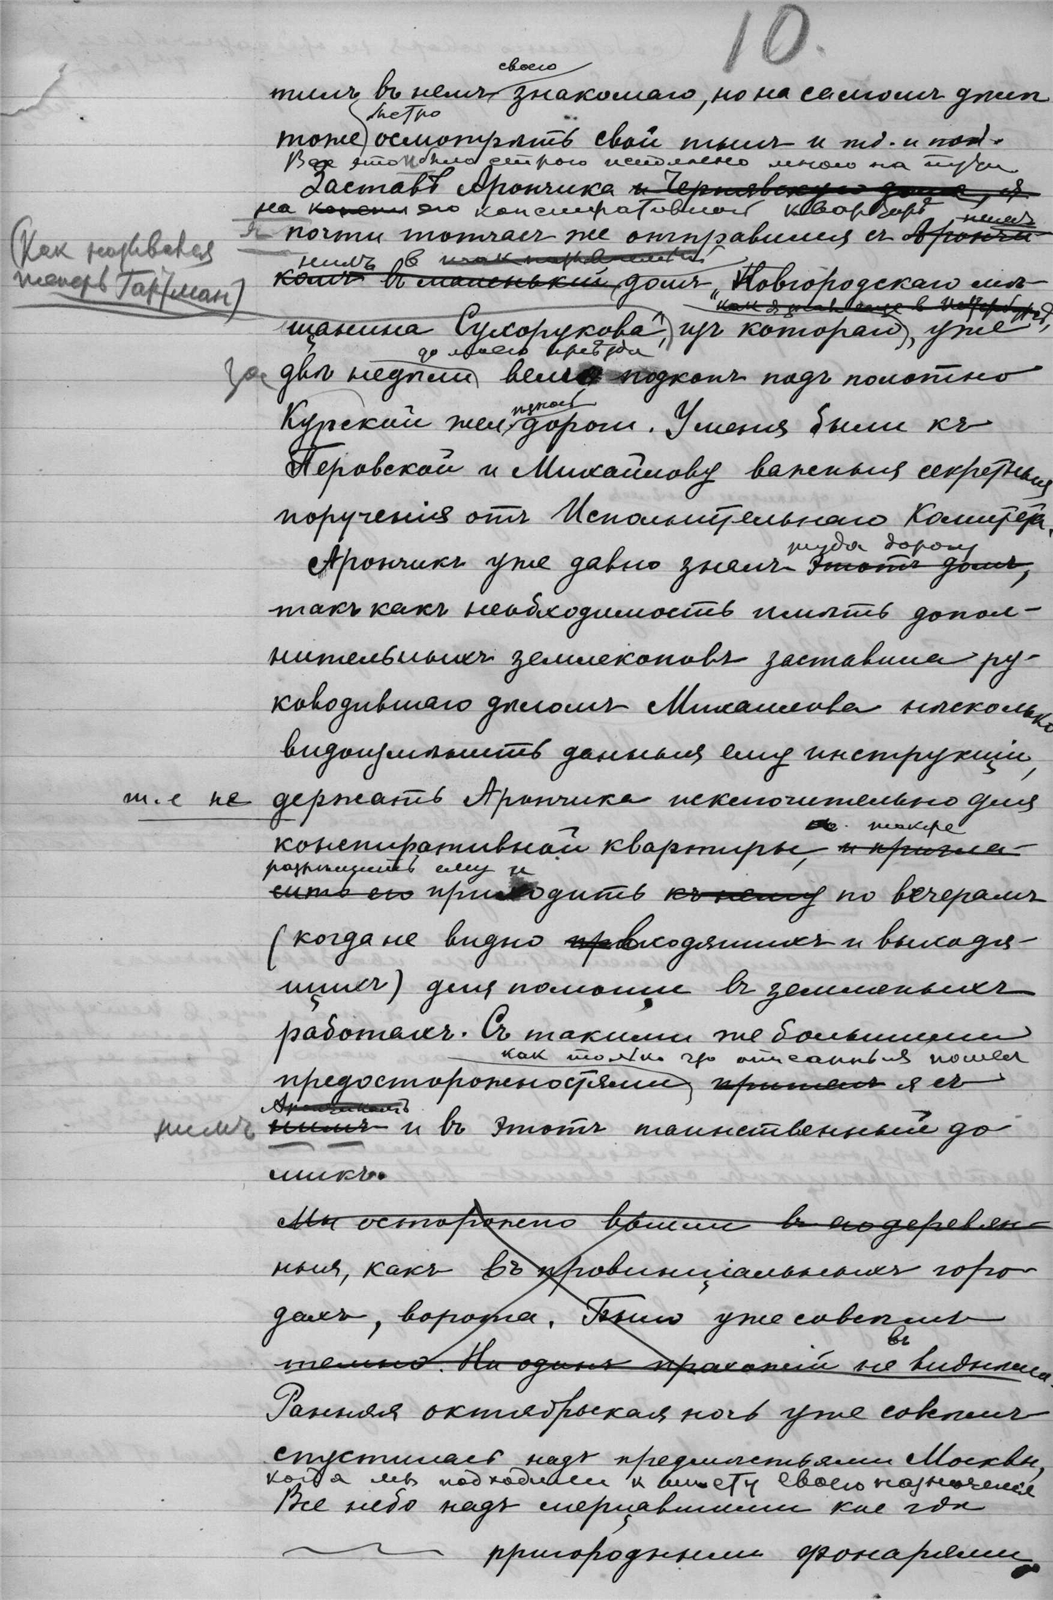 10.
своего
тилъ въ немъ знакомаго, но на самомъ дѣлѣ
быстро
тоже осмотрѣть свой тылъ и тд. и под.
Все это было строго исполнено мною на пути
Заставъ Арончика и Чернявскую дома, я
на его конспиративной квартирѣ
я почти тотчасъ же отправился съ Арончи- нимъ
(Как называся
нимъ в
комъ въ маленькій домъ „Новгородскаго мѣ-
теперь Гартман)
щанина Сухорукова", изъ котораго, уже
до моего приѣзда
за двѣ недѣли велся подкопъ подъ полотно
Курской жел. дороги. У меня были къ
Перовской и Михайлову важныя секретныя
порученія отъ Исполнительнаго Комитета.
туда дорогу
Арончикъ уже давно зналъ этотъ домъ,
такъ какъ необходимость имѣть допол-
нительныхъ землекоповъ заставила ру-
ководившаго дѣломъ Михайлова нѣсколько
видоизмѣнить данныя ему инструкціи,
т.е не держать Арончика исключительно для
также
конспиративной квартиры, и пригла-
разрѣшить ему и
сить его приходить къ нему по вечерамъ
(когда не видно входящихъ и выходя-
щихъ) для помощи въ земляныхъ
работахъ. Съ такими же большими
как только что описанныя пошел
предосторожностями, пришелъ я съ
Арончикомъ
нимъ нимъ и въ этотъ таинственный до
микъ.
Мы осторожно вошли въ его деревян-
ныя, какъ въ провинціальныхъ горо-
дахъ, ворота. Было уже совсѣмъ
въ
темно. Ни одинъ прохожій не виднѣлся.
Ранняя октябрьская ночь уже совсѣмъ
спустилась надъ предмѣстьями Москвы,
когда мы подходили к мѣсту своего назначения
Все небо надъ мерцавшими кое гдѣ
пригородными фонарями